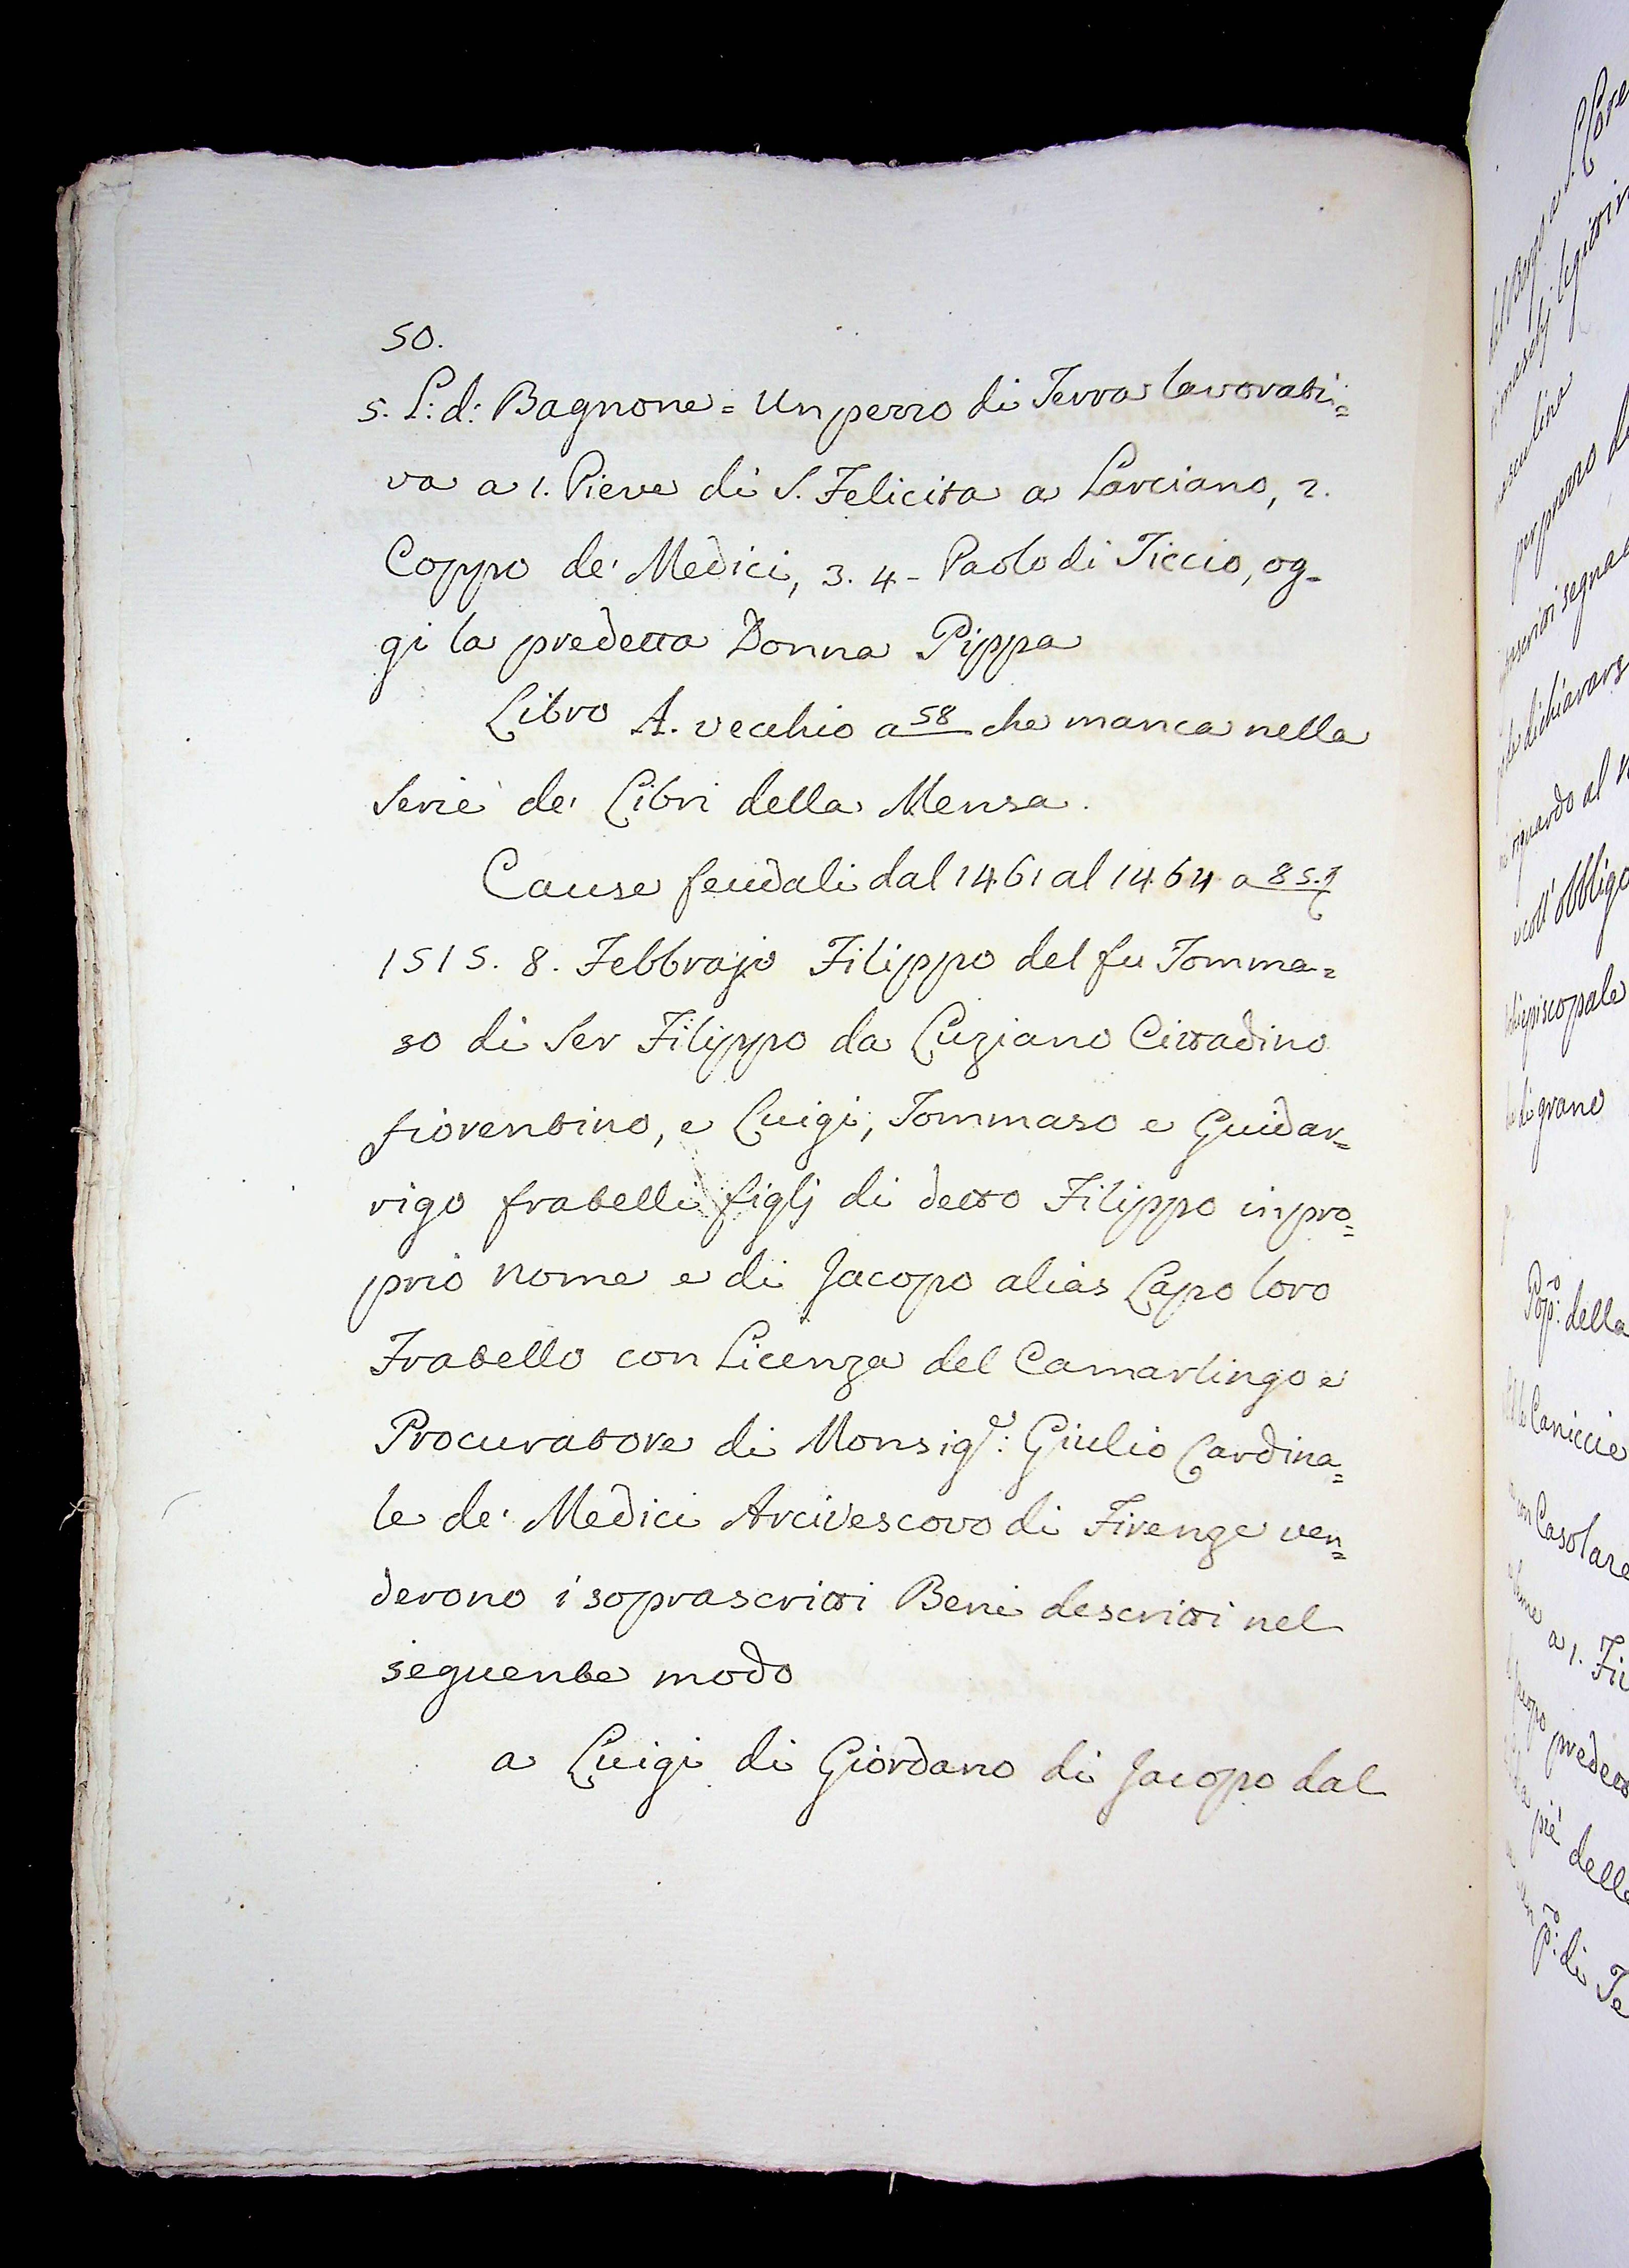 50.
5. L: d: Bagnone = Un pezzo di Terra lavorati=
va a 1. Pieve di S. Felicita a Larciano, 2.
Coppo de' Medici, 3. 4 - Paolo di Ticcio, og=
gi la predetta Donna Pippa
Libro A. vecchio a 58 che manca nella
Serie de' Libri della Mensa.
Cause feudali dal 1461 al 1464 a 85.
1515. 8. Febbrajo Filippo del fu Tomma=
so di Ser Filippo da Luziano Cittadino
fiorentino, e Luigi, Tommaso e Guidar=
rigo fratelli figlj di detto Filippo in pro=
prio nome e di Jacopo alias Lapo loro
Fratello con Licenza del Camarlingo e
Procuratore di Monsig.e: Giulio Cardina=
le de' Medici Arcivescovo di Firenze ven=
derono i soprascritti Beni descritti nel
seguente modo
a Luigi di Giordano di Jacopo dal
segna
dichiarars
riguardo al
coll'obbligo
di grano
Pop:o della
Caniccie
con Casolare
a 1.
piè delle
P:o di Te